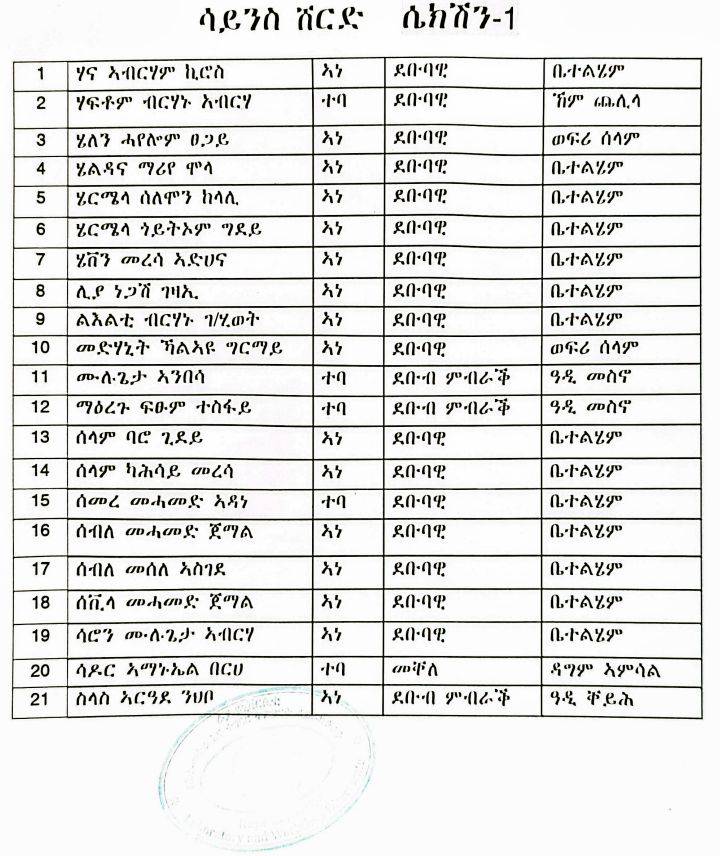 ሳይንስ ሽርድ ሴክሽን-1
1 ሃና ኣብርሃም ኪሮስ ኣነ ደቡባዊ ቤተልሄም
2 ሃፍቶም ብርሃኑ አብርሃ ተባ ደቡባዊ ኸም ጨሊላ
3 ሄለን ሓየሎም ፀጋይ ኣነ ደቡባዊ ወፍሪ ሰላም
4 ሄልዳና ማሪየ ሞላ ኣነ ደቡባዊ ቤተልሄም
5 ሄርሜላ ሰለሞን ከላሊ ኣነ ደቡባዊ ቤተልሄም
6 ሄርሜላ ጎይትኦም ግደይ ኣነ ደቡባዊ ቤተልሄም
7 ሄቨን መረሳ ኣድሀና ኣነ ደቡባዊ ቤተልሄም
8 ሊያ ነጋሽ ገዛኢ ኣነ ደቡባዊ ቤተልሄም
9 ልእልቲ ብርሃኑ ገ/ሂወት ኣነ ደቡባዊ ቤተልሄም
10 መድሃኒት ኻልኣዩ ግርማይ ኣነ ደቡባዊ ወፍሪ ሰላም
11 ሙሉጌታ ኣንበሳ ተባ ደቡብ ምብራቕ ዓዲ መስኖ
12 ማዕረጉ ፍፁም ተስፋይ ተባ ደቡብ ምብራቕ ዓዲ መስኖ
13 ሰላም ባሮ ጊደይ ኣነ ደቡባዊ ቤተልሄም
14 ሰላም ካሕሳይ መረሳ ኣነ ደቡባዊ ቤተልሄም
15 ሰመረ መሓመድ ኣዳነ ተባ ደቡባዊ ቤተልሄም
16 ሰብለ መሓመድ ጀማል ኣነ ደቡባዊ ቤተልሄም
17 ሰብለ መሰለ ኣስገደ ኣነ ደቡባዊ ቤተልሄም
18 ሰቪላ መሓመድ ጀማል ኣነ ደቡባዊ ቤተልሄም
19 ሳሮን ሙሉጌታ ኣብርሃ ኣነ ደቡባዊ ቤተልሄም
20 ሳዶር ኣማኑኤል በርሀ ተባ መቐለ ዳግም ኣምሳል
21 ስላስ ኣርዓደ ንህቦ ኣነ ደቡብ ምብራቕ ዓዲ ቐይሕ